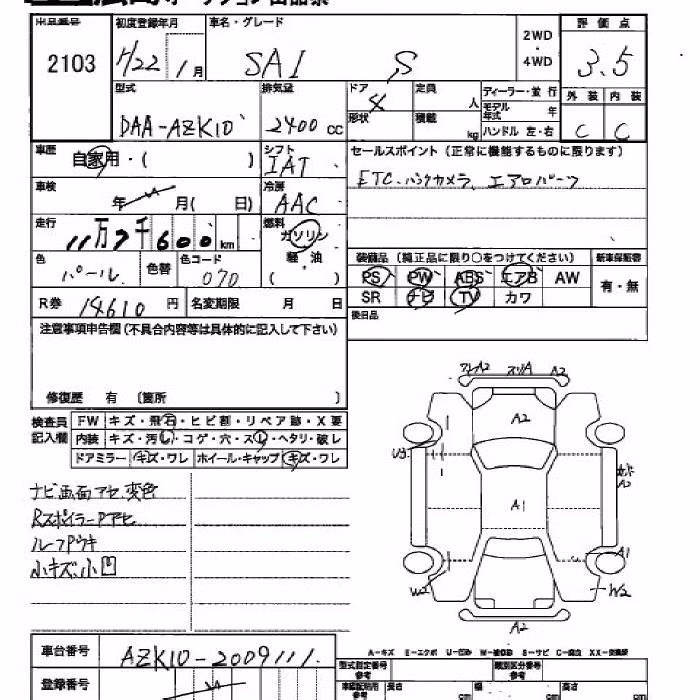 出品番号 初度登録年月 車名・グレード 2WD・4WD 評価点
2103 H22/1月 SAI S 3.5
型式 排気量 ドア 4 定員 人 ディーラー・並行 外装 内装
DAA-AZK10 2400cc 形状 積載 kg モデル年式 年 ハンドル 左・右 C C
車歴 自家用・( ) シフト IAT セールスポイント (正常に機能するものに限ります)
車検 年 月( 日) 冷房 AAC ETC、バックカメラ、エアロパーツ
走行 11万7千600km 燃料 ガソリン 軽・油 ( )
色 パール 色替 色コード 070
装備品 (純正品に限り○をつけてください) 新車保証書
PS PW ABS エアB AW 有・無
SR ナビ TV カワ
R券 14610円 名変期限 月 日 後日品
注意事項申告欄(不具合内容等は具体的に記入して下さい)
修復歴 有 〔箇所 〕
検査員記入欄 FW キズ・飛石・ヒビ割・リペア跡・X要
内装 キズ・汚レ・コゲ・穴・スレ・ヘタリ・破レ
ドアミラー キズ・ワレ ホイール・キャップ キズ・ワレ
ナビ画面アセ、変色
RスポイラーPアセ
ルーフPウキ
小キズ、小凹
A2 スリA A2
A2
U3
A2
A1
A1
W2 W2
A2
A-キズ E-エクボ U-凹み W-波状跡 S-サビ C-腐食 XX-交換済
車台番号 AZK10-2009111
登録番号
型式指定番号 参考 類別区分番号 参考
車輌証記用 参考 長さ cm 幅 cm 高さ cm